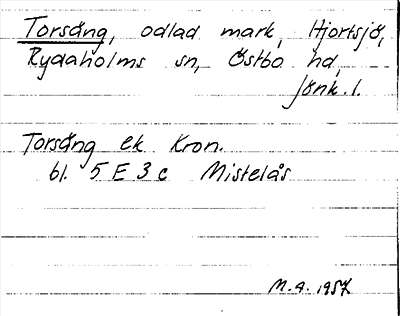 Torsäng, odlad mark, Hjortsjö,
Rydaholms sn, Östbo hd,
Jönk. l.
Torsäng ek Kron.
bl. 5 E 3 c Mistelås
M.A. 1957